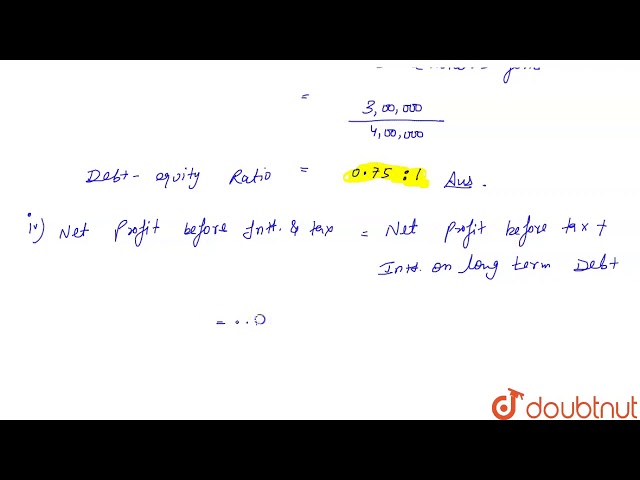 =
=
3,00,000
4,00,000
Debt- equity Ratio = 0.75 : 1 Ans.
iv) Net Profit before Intt. & tax = Net Profit before tax +
Intt. on long term Debt
= . . 0
doubtnut